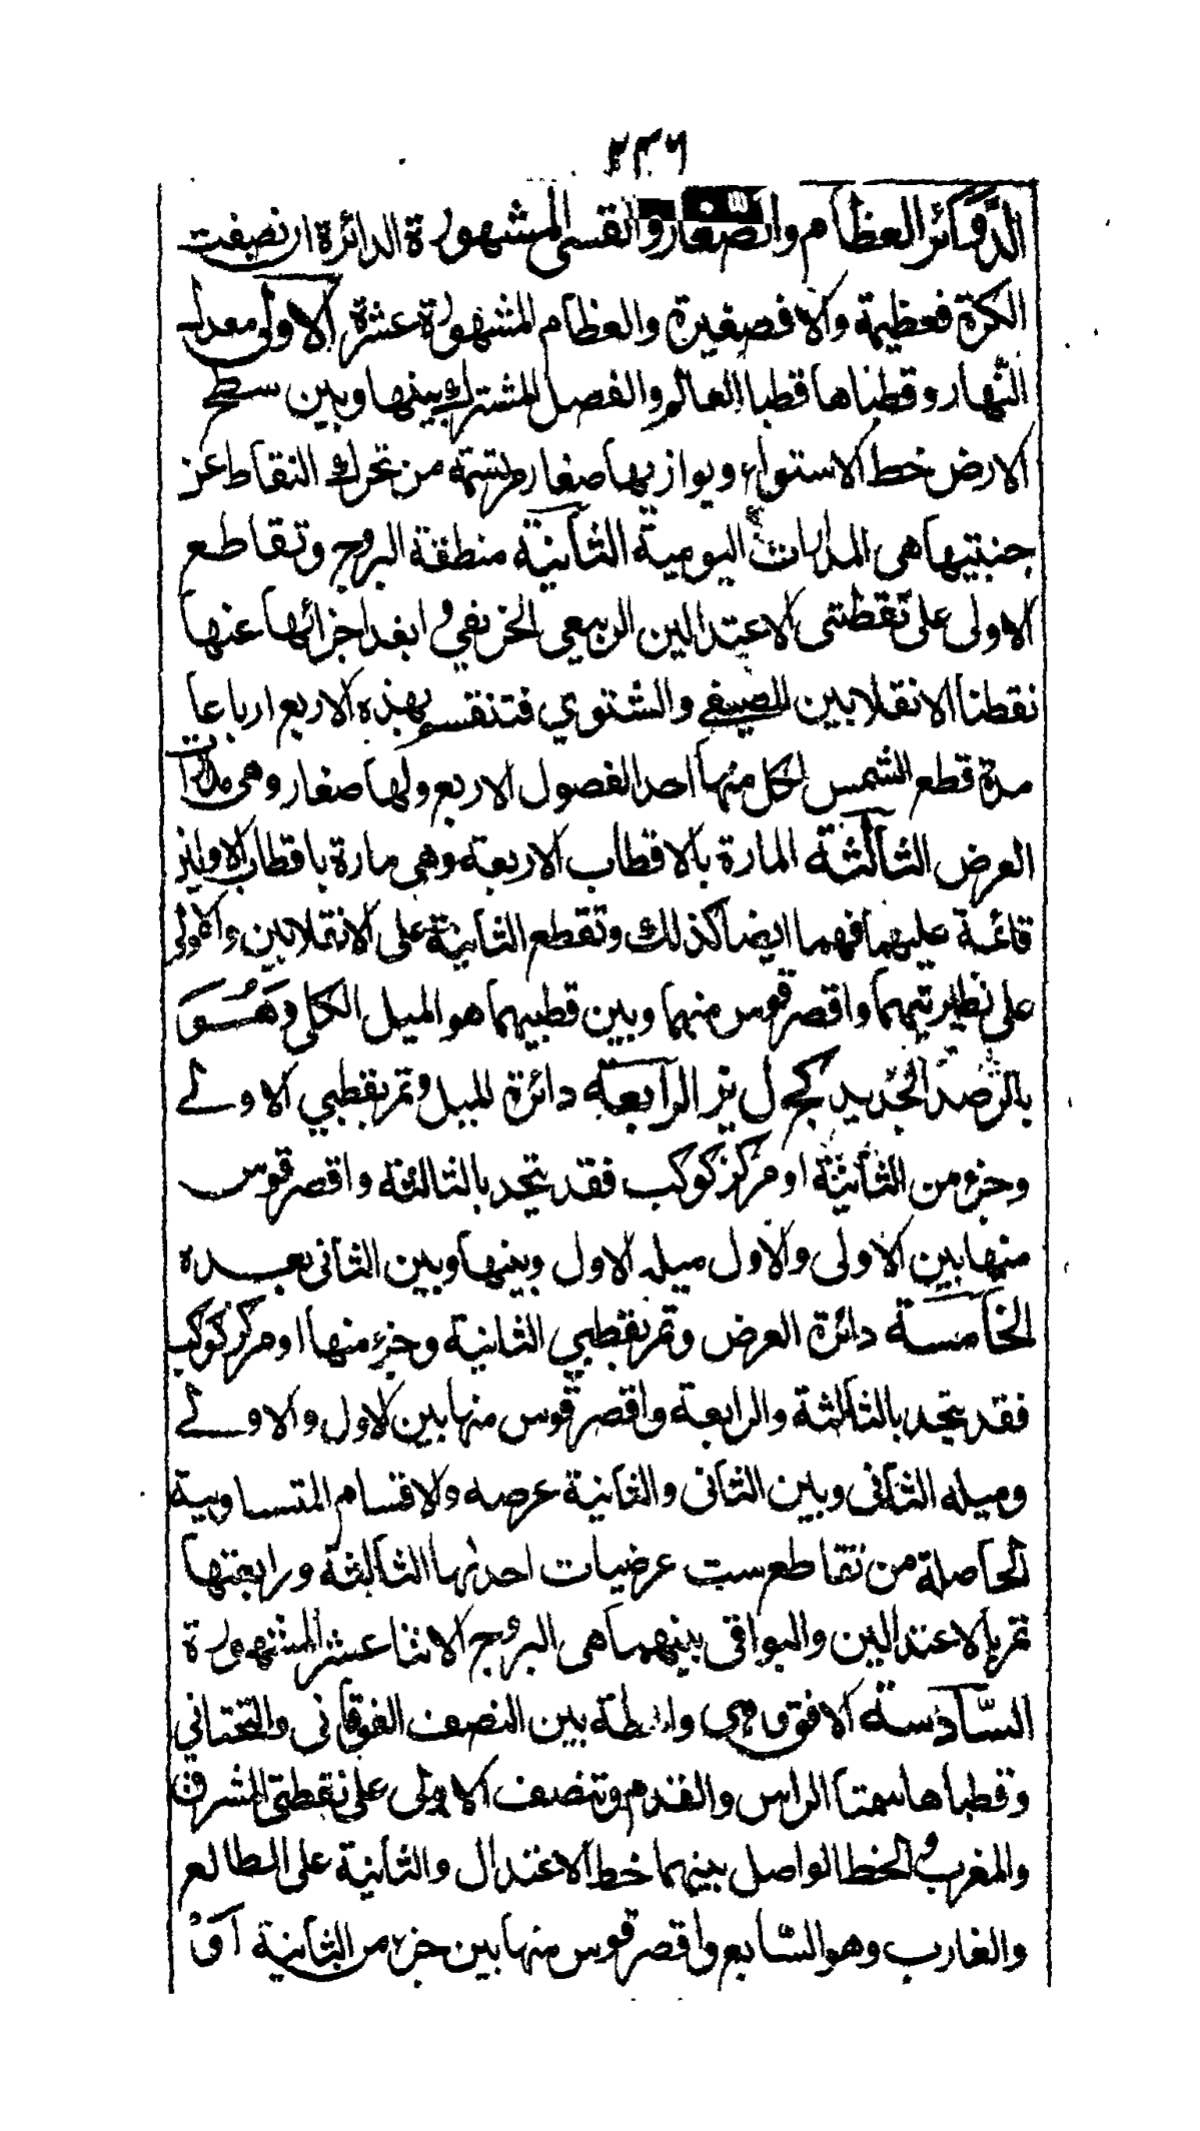 ٢٣٦
الدوائر العظام والصغار والقسي المشهورة الدائرة ان نصفت
الكرة فعظيمة والا فصغيرة والعظام المشهورة عشرة الاولى معدل
النهار وقطباها قطبا العالم والفصل المشترك بينها وبين سطح
الارض خط الاستواء ويوازيها صغار مرتسمة من تحرك النقاط عن
جنبتيها هي المدارات اليومية الثانية منطقة البروج وتقاطع
الاولى على نقطتى الاعتدالين الربيعي الخريفي و ابعد اجزائها عنها
نقطتا الانقلابين الصيفي والشتوي فتنقسم بهذه الاربع ارباعا
مدة قطع الشمس لكل منها احد الفصول الاربع ولها صغار وهي مدارات
العرض الثالثة المارة بالاقطاب الاربعة وهي مارة باقطاب الاوليين
قائمة عليهما فهما ايضا كذلك وتقطع الثانية على الانقلابين والاولى
على نظيرتيهما واقصر قوس منهما وبين قطبيهما هو الميل الكلي وهو
بالرصد الجديد كج ل يز الرابعة دائرة الميل وتمر بقطبي الاولى
وجزء من الثانية او مركز كوكب فقد يتحد بالثالثة واقصر قوس
منها بين الاولى والاول ميله الاول وبينها وبين الثاني بعده
الخامسة دائرة العرض وتمر بقطبي الثانية وجزء منها او مركز كوكب
فقد يتحد بالثالثة والرابعة واقصر قوس منها بين الاول والاولى
وميله الثاني وبين الثاني والثانية عرضه والاقسام المتساوية
الحاصلة من تقاطع ست عرضيات احدها الثالثة ورابعتها
تمر بالاعتدالين والبواقي بينهما هي البروج الاثنا عشر المشهورة
السادسة الافق وهي واسطة بين النصف الفوقاني والتحتاني
وقطباها سمتا الراس والقدم وتنصف الاولى على نقطتي المشرق
والمغرب والخط الواصل بينهما خط الاعتدال والثانية على الطالع
والغارب وهو السابع واقصر قوس منها بين جزء من الثانية او